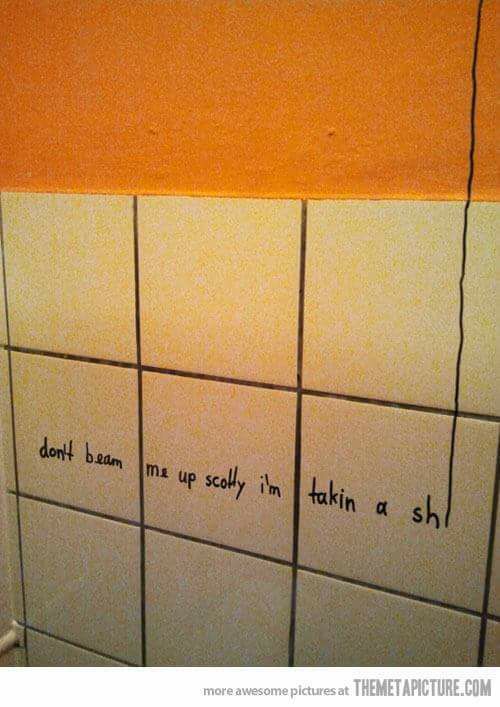 don't beam me up scotty i'm takin a shi
more awesome pictures at THEMETAPICTURE.COM